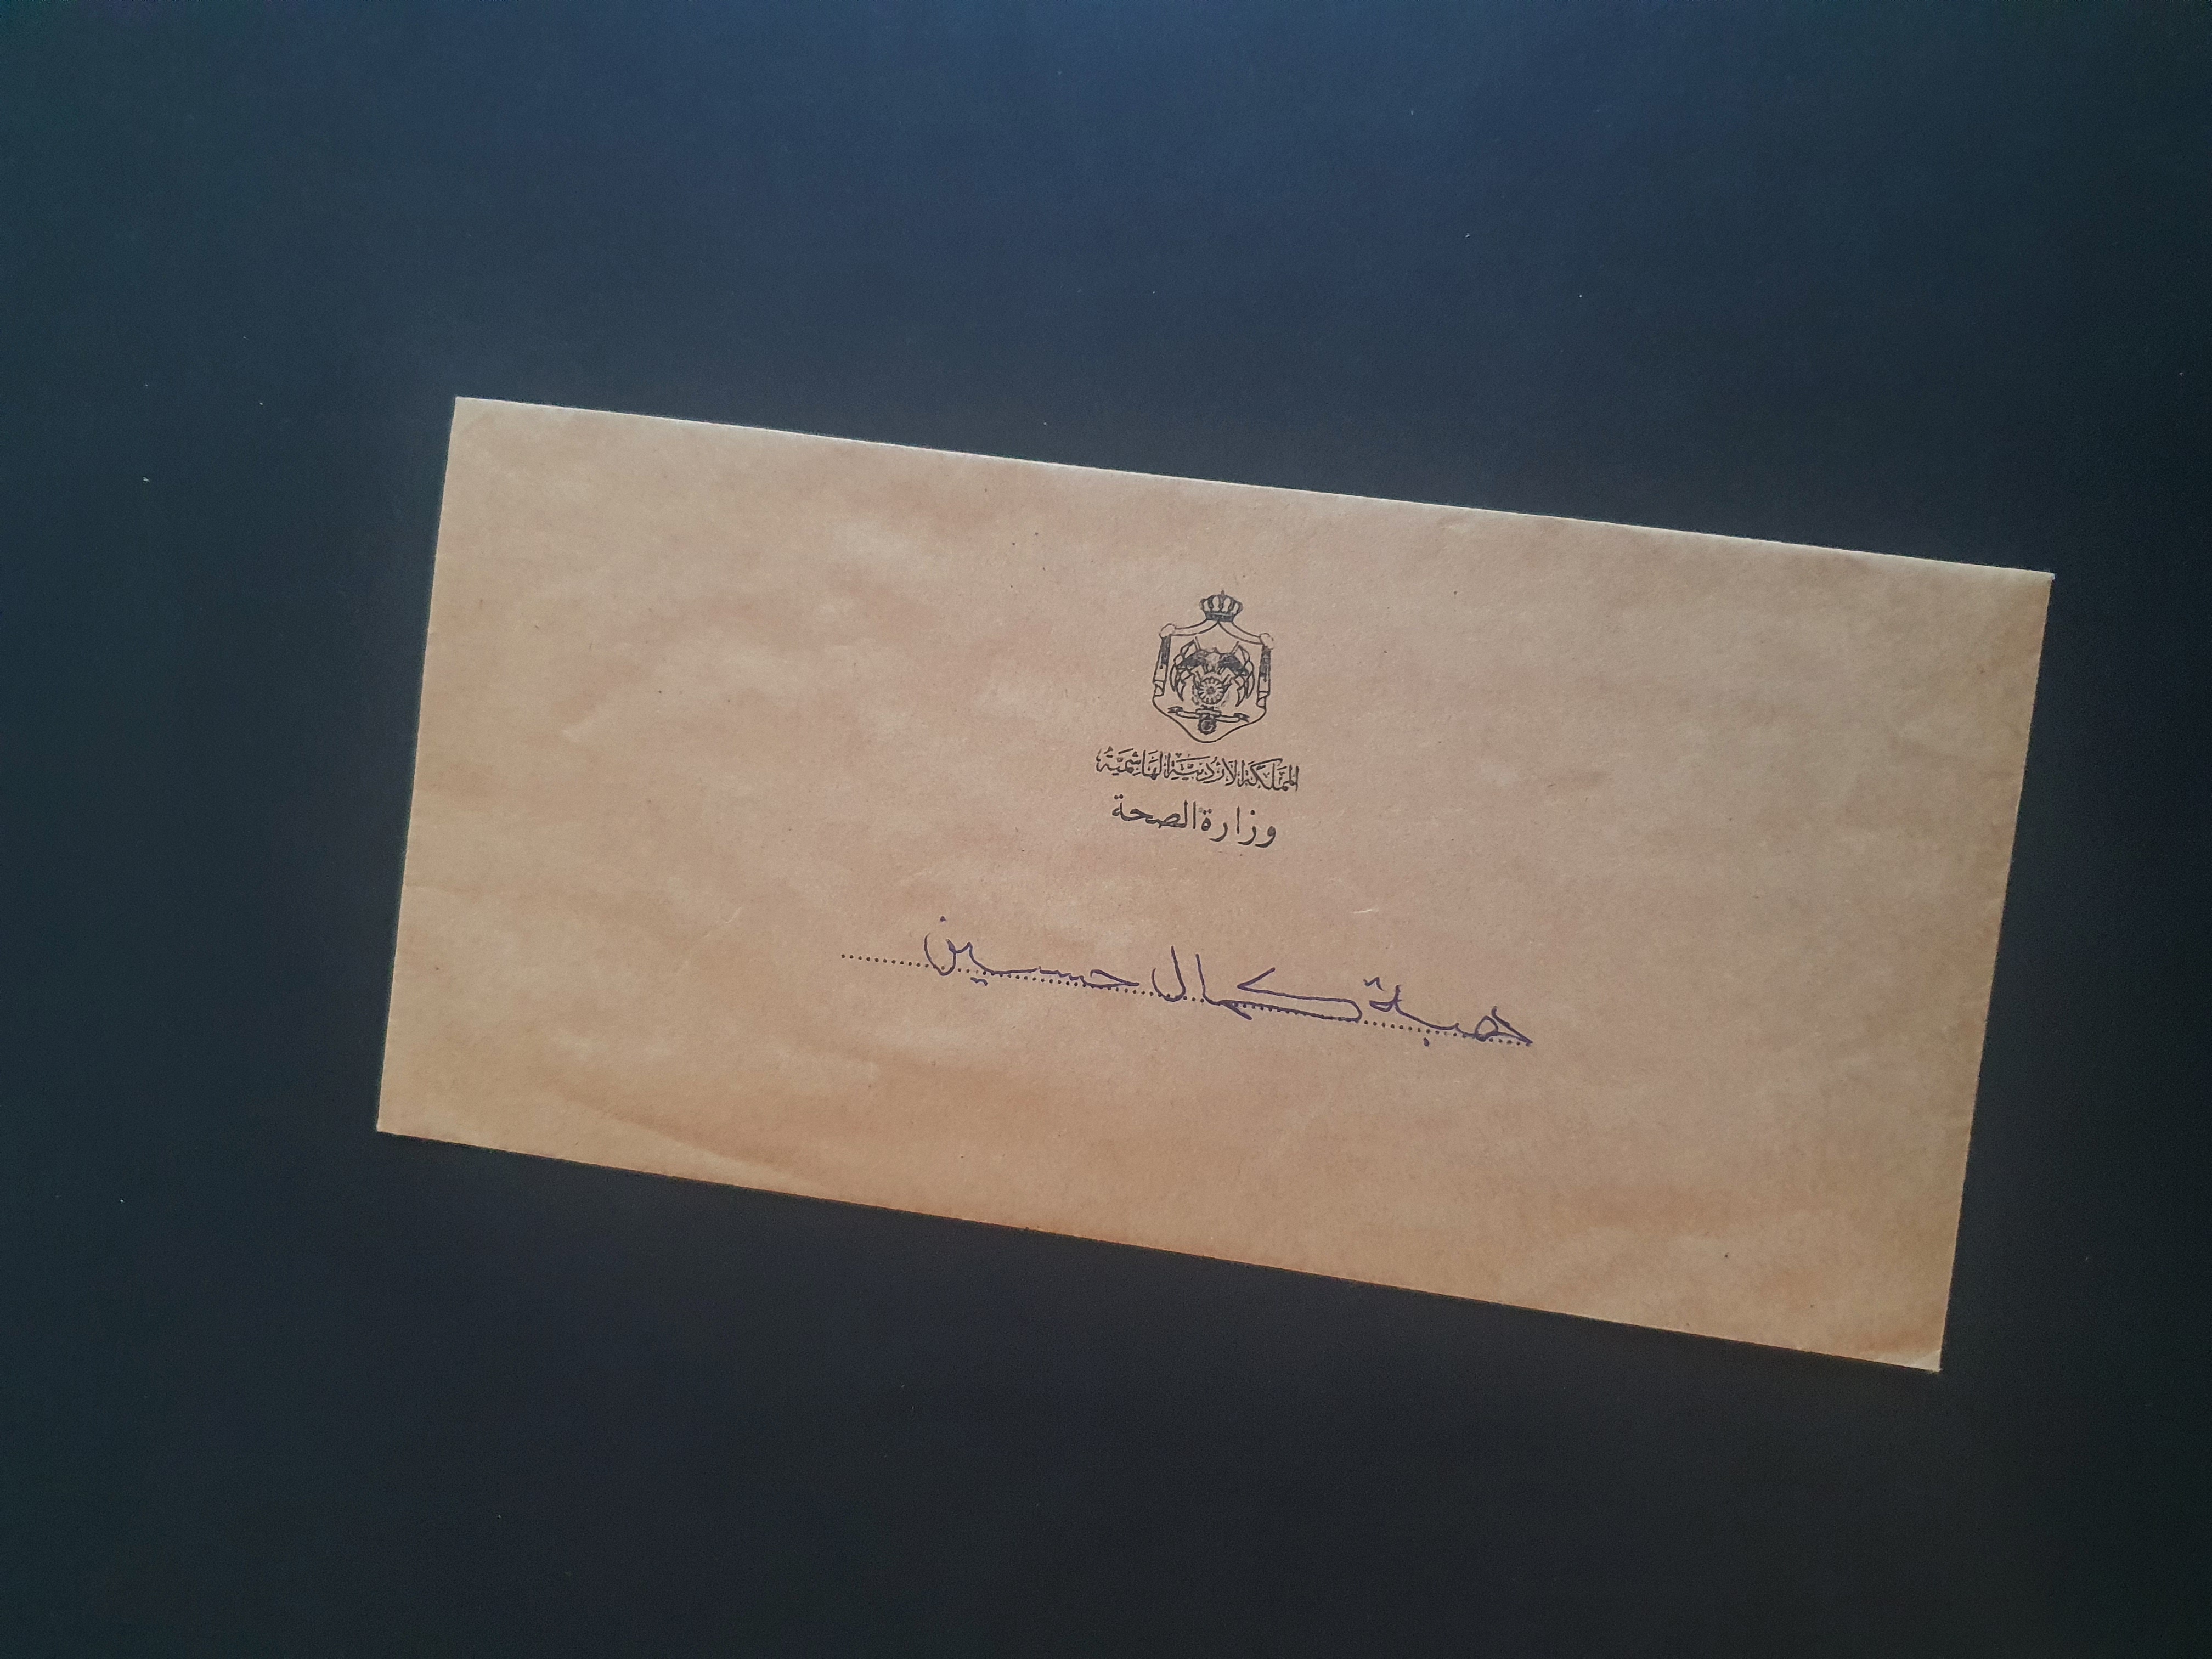 المملكة الاردنية الهاشمية
وزارة الصحة
هبة كمال حسين